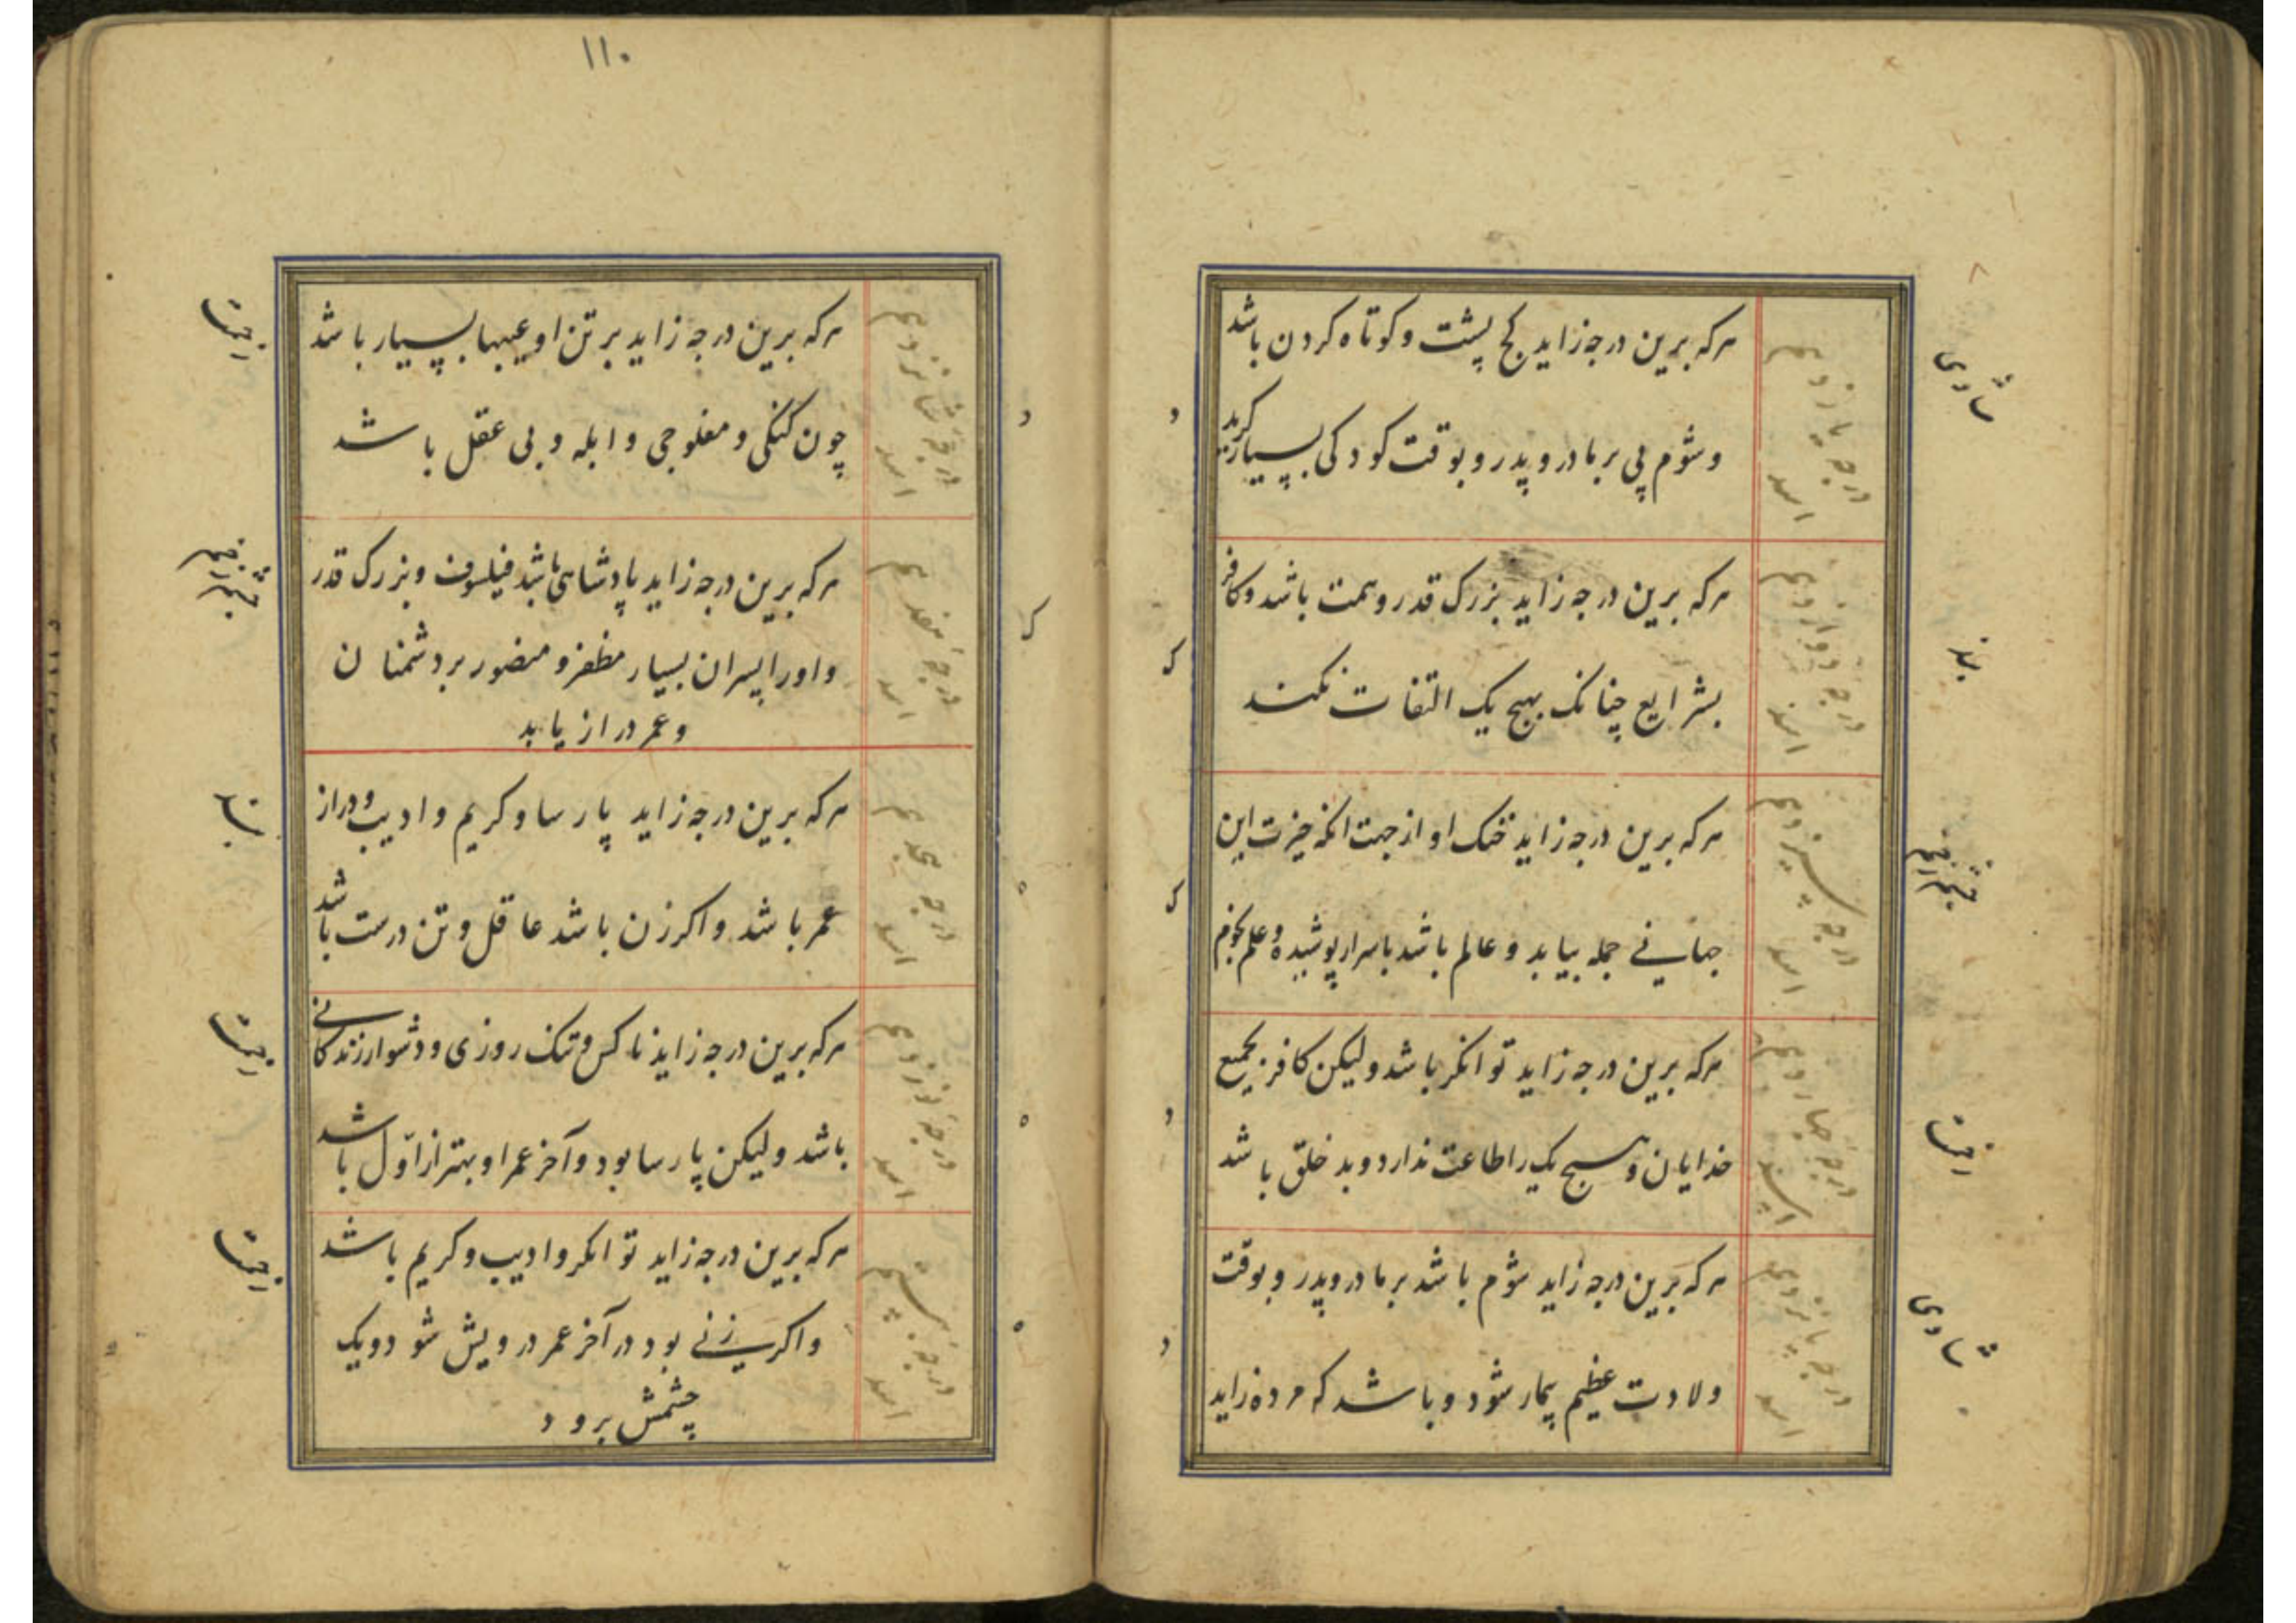 درجه یازدهم
اسد
هرکه برین درجه زاید کج پشت و کوتاه کردن باشد
و شوم پی بر مادر و پدر و بوقت کودکی بسیار کرید
درجه دوازدهم
اسد
هرکه برین درجه زاید بزرک قدر و همت باشد و کافر
بشرایع چنانک بهیچ یک التفات نکند
درجه سیزدهم
اسد
هرکه برین درجه زاید خنک او از جهت انکه خیرت این
جهانی جمله بیابد و عالم باشد باسرار پوشیده و علم نجوم
درجه چهاردهم
اسد
هرکه برین درجه زاید توانکر باشد ولیکن کافر بجمیع
خدایان و هیچ یک را طاعت ندارد و بد خلق باشد
درجه پانزدهم
اسد
هرکه برین درجه زاید شوم باشد بر مادر و پدر و بوقت
ولادت عظیم بیمار شود و باشد که مرده زاید
۱۱۰
درجه شانزدهم
اسد
هرکه برین درجه زاید بر تن او عیبها بسیار باشد
چون کنکی و مفلوجی و ابله و بی عقل باشد
درجه هفدهم
اسد
هرکه برین درجه زاید پادشاهی باشد فیلسوف و بزرک قدر
و اورا پسران بسیار مظفر و منصور بر دشمنان
و عمر دراز یابد
درجه هجدهم
اسد
هرکه برین درجه زاید پارسا و کریم و ادیب و دراز
عمر باشد و اکر زن باشد عاقل و تن درست باشد
درجه نوزدهم
اسد
هرکه برین درجه زاید ناکس و تنک روزی و دشوار زندکانی
باشد ولیکن پارسا بود و آخر عمر او بهتر از اوّل باشد
درجه بیستم
اسد
هرکه برین درجه زاید توانکر و ادیب و کریم باشد
و اکر زنی بود در آخر عمر درویش شود و یک
چشمش برود